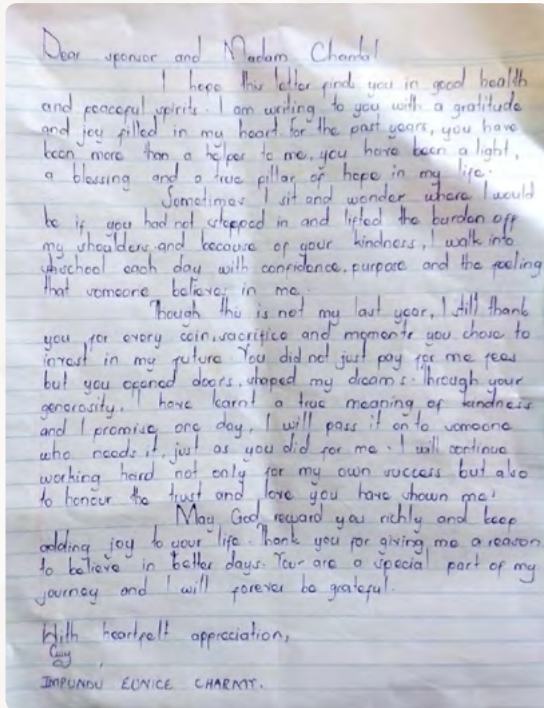 Dear sponsor and Madam Chantal
I hope this letter finds you in good health
and peaceful spirits. I am writing to you with a gratitude
and joy filled in my heart for the past years, you have
been more than a helper to me, you have been a light,
a blessing and a true pillar of hope in my life.
Sometimes I sit and wonder where I would
be if you had not stepped in and lifted the burden off
my shoulders and because of your kindness, I walk into
school each day with confidence, purpose and the feeling
that someone believes in me.
Though this is not my last year, I still thank
you for every coin, sacrifice and moments you chose to
invest in my future. You did not just pay for me fees
but you opened doors, shaped my dreams. Through your
generosity, I have learnt a true meaning of kindness
and I promise one day, I will pass it on to someone
who needs it, just as you did for me. I will continue
working hard not only for my own success but also
to honour the trust and love you have shown me.
May God reward you richly and keep
adding joy to your life. Thank you for giving me a reason
to believe in better days. Your are a special part of my
journey and I will forever be grateful.
With heartfelt appreciation,
IMPUNDU EUNICE CHARMT.